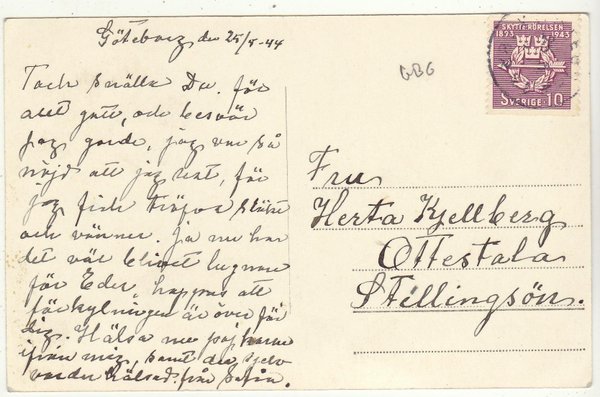 Göteborg den 25/5-44
Tack snälla Du för
allt gott, och besvär
jag gorde, jag var så
nöjd att jag rest, för
jag fick träffa släkt
och vänner. Ja nu har
det väl blivet lugnare
för Eder, hoppas att
förkylningen är över för
dig. Hälsa nu pojkarna
ifrån mig, samt du sjelv
varder hälsad från
SKYTTERÖRELSEN
1893 1943
SVERIGE 10
GBG
Fru
Herta Kjellberg
Ottestala
Stillingsön.